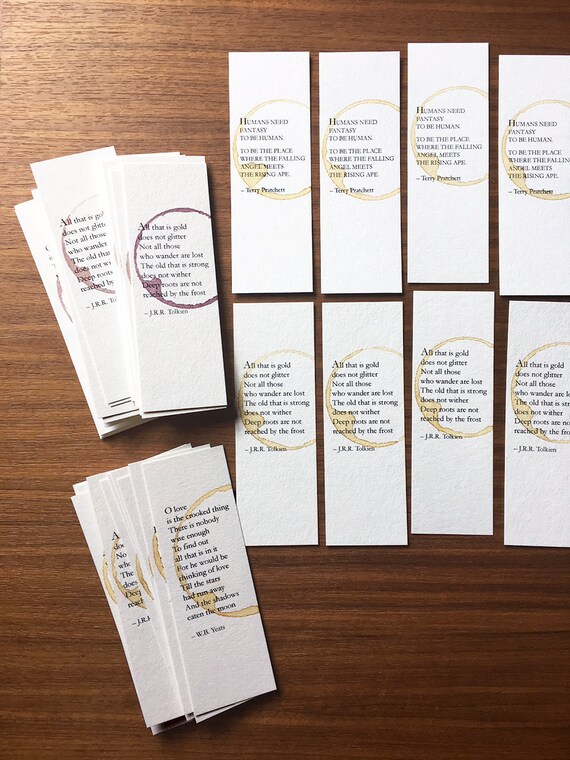 HUMANS NEED
FANTASY
TO BE HUMAN.
TO BE THE PLACE
WHERE THE FALLING
ANGEL MEETS
THE RISING APE.
– Terry Pratchett
HUMANS NEED
FANTASY
TO BE HUMAN.
TO BE THE PLACE
WHERE THE FALLING
ANGEL MEETS
THE RISING APE.
– Terry Pratchett
HUMANS NEED
FANTASY
TO BE HUMAN.
TO BE THE PLACE
WHERE THE FALLING
ANGEL MEETS
THE RISING APE.
– Terry Pratchett
HUMANS NEED
FANTASY
TO BE HUMAN.
TO BE THE PLACE
WHERE THE
ANGEL MEETS
THE RISING APE.
– Terry Pratchett
All that is gold
does not glitter
Not all those
who wander
The old
does not
Deep roots
reached by
– J.R.R.
All that is gold
does not glitter
Not all those
who wander are lost
The old that is strong
does not wither
Deep roots are not
reached by the frost
– J.R.R. Tolkien
All that is gold
does not glitter
Not all those
who wander are lost
The old that is strong
does not wither
Deep roots are not
reached by the frost
– J.R.R. Tolkien
All that is gold
does not glitter
Not all those
who wander are lost
The old that is strong
does not wither
Deep roots are not
reached by the frost
– J.R.R. Tolkien
All that is gold
does not glitter
Not all those
who wander are lost
The old that is strong
does not wither
Deep roots are not
reached by the frost
– J.R.R. Tolkien
All that is gold
does not glitter
Not all those
who wander are
The old that is
does not wither
Deep roots are not
reached by the
– J.R.R. Tolkien
The
does
Deep
O love
is the crooked thing
There is nobody
wise enough
To find out
all that is in it
For he would be
thinking of love
Till the stars
had run away
And the shadows
eaten the moon
– W.B. Yeats